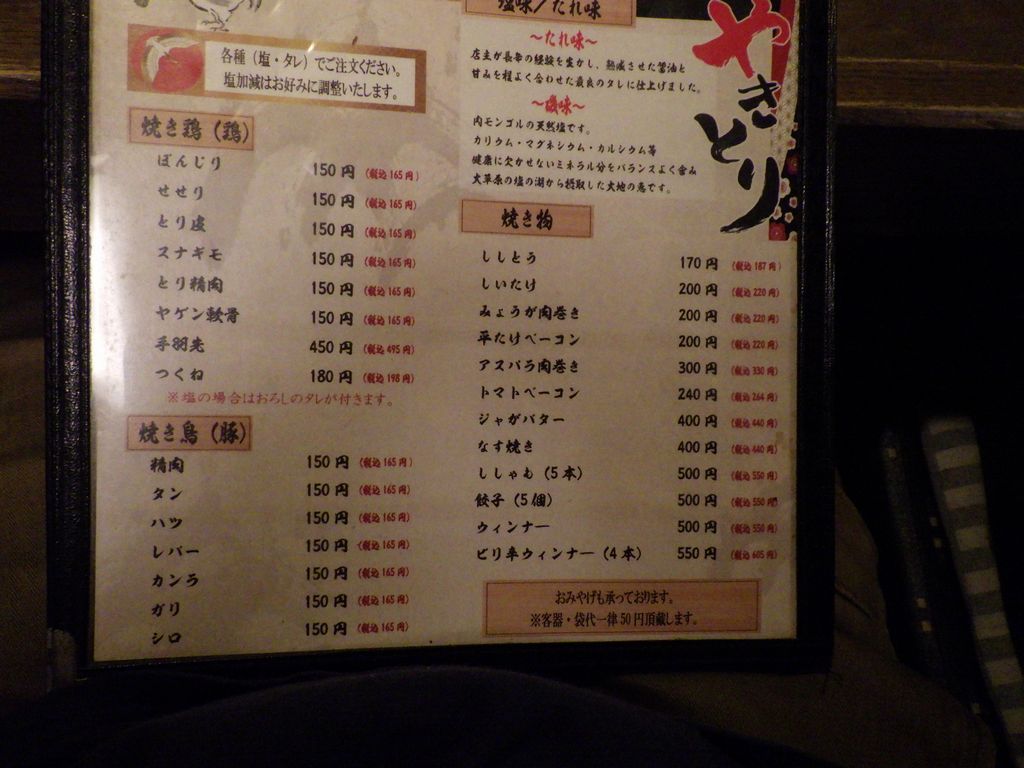 各種（塩・タレ）でご注文ください。
塩加減はお好みに調整いたします。
焼き鶏（鶏）
ぼんじり 150円（税込165円）
せせり 150円（税込165円）
とり皮 150円（税込165円）
スナギモ 150円（税込165円）
とり精肉 150円（税込165円）
ヤゲン軟骨 150円（税込165円）
手羽先 450円（税込495円）
つくね 180円（税込198円）
※塩の場合はおろしのタレが付きます。
焼き鳥（豚）
精肉 150円（税込165円）
タン 150円（税込165円）
ハツ 150円（税込165円）
レバー 150円（税込165円）
カンラ 150円（税込165円）
ガリ 150円（税込165円）
シロ 150円（税込165円）
塩味／たれ味
～たれ味～
店主が長年の経験を生かし、熟成させた醤油と
甘みを程よく合わせた最良のタレに仕上げました。
～塩味～
内モンゴルの天然塩です。
カリウム・マグネシウム・カルシウム等
健康に欠かせないミネラル分をバランスよく含み
大草原の塩の湖から摂取した大地の恵です。
やきとり
焼き物
ししとう 170円（税込187円）
しいたけ 200円（税込220円）
みょうが肉巻き 200円（税込220円）
平たけベーコン 200円（税込220円）
アスパラ肉巻き 300円（税込330円）
トマトベーコン 240円（税込264円）
ジャガバター 400円（税込440円）
なす焼き 400円（税込440円）
ししゃも（5本） 500円（税込550円）
餃子（5個） 500円（税込550円）
ウィンナー 500円（税込550円）
ピリ辛ウィンナー（4本） 550円（税込605円）
おみやげも承っております。
※容器・袋代一律50円頂戴します。